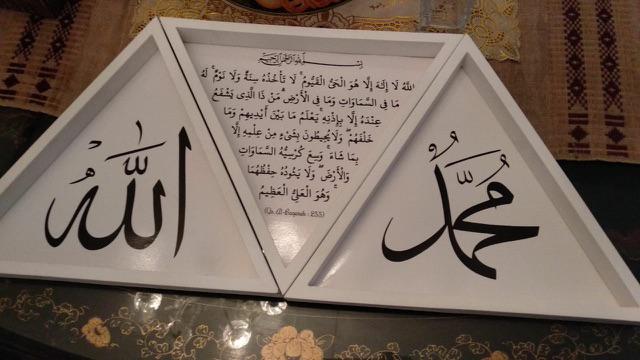 الله
بِسْمِ اللهِ الرَّحْمٰنِ الرَّحِيْمِ
اللهُ لَا إِلٰهَ إِلَّا هُوَ الْحَيُّ الْقَيُّومُ ۚ لَا تَأْخُذُهُ سِنَةٌ وَلَا نَوْمٌ ۚ لَهُ
مَا فِي السَّمَاوَاتِ وَمَا فِي الْأَرْضِ ۗ مَنْ ذَا الَّذِي يَشْفَعُ
عِنْدَهُ إِلَّا بِإِذْنِهِ ۚ يَعْلَمُ مَا بَيْنَ أَيْدِيهِمْ وَمَا
خَلْفَهُمْ ۖ وَلَا يُحِيطُونَ بِشَيْءٍ مِنْ عِلْمِهِ إِلَّا
بِمَا شَاءَ ۚ وَسِعَ كُرْسِيُّهُ السَّمَاوَاتِ
وَالْأَرْضَ ۖ وَلَا يَئُودُهُ حِفْظُهُمَا ۚ
وَهُوَ الْعَلِيُّ الْعَظِيمُ
(Qs. Al-Baqarah : 255)
مُحَمَّدٌ